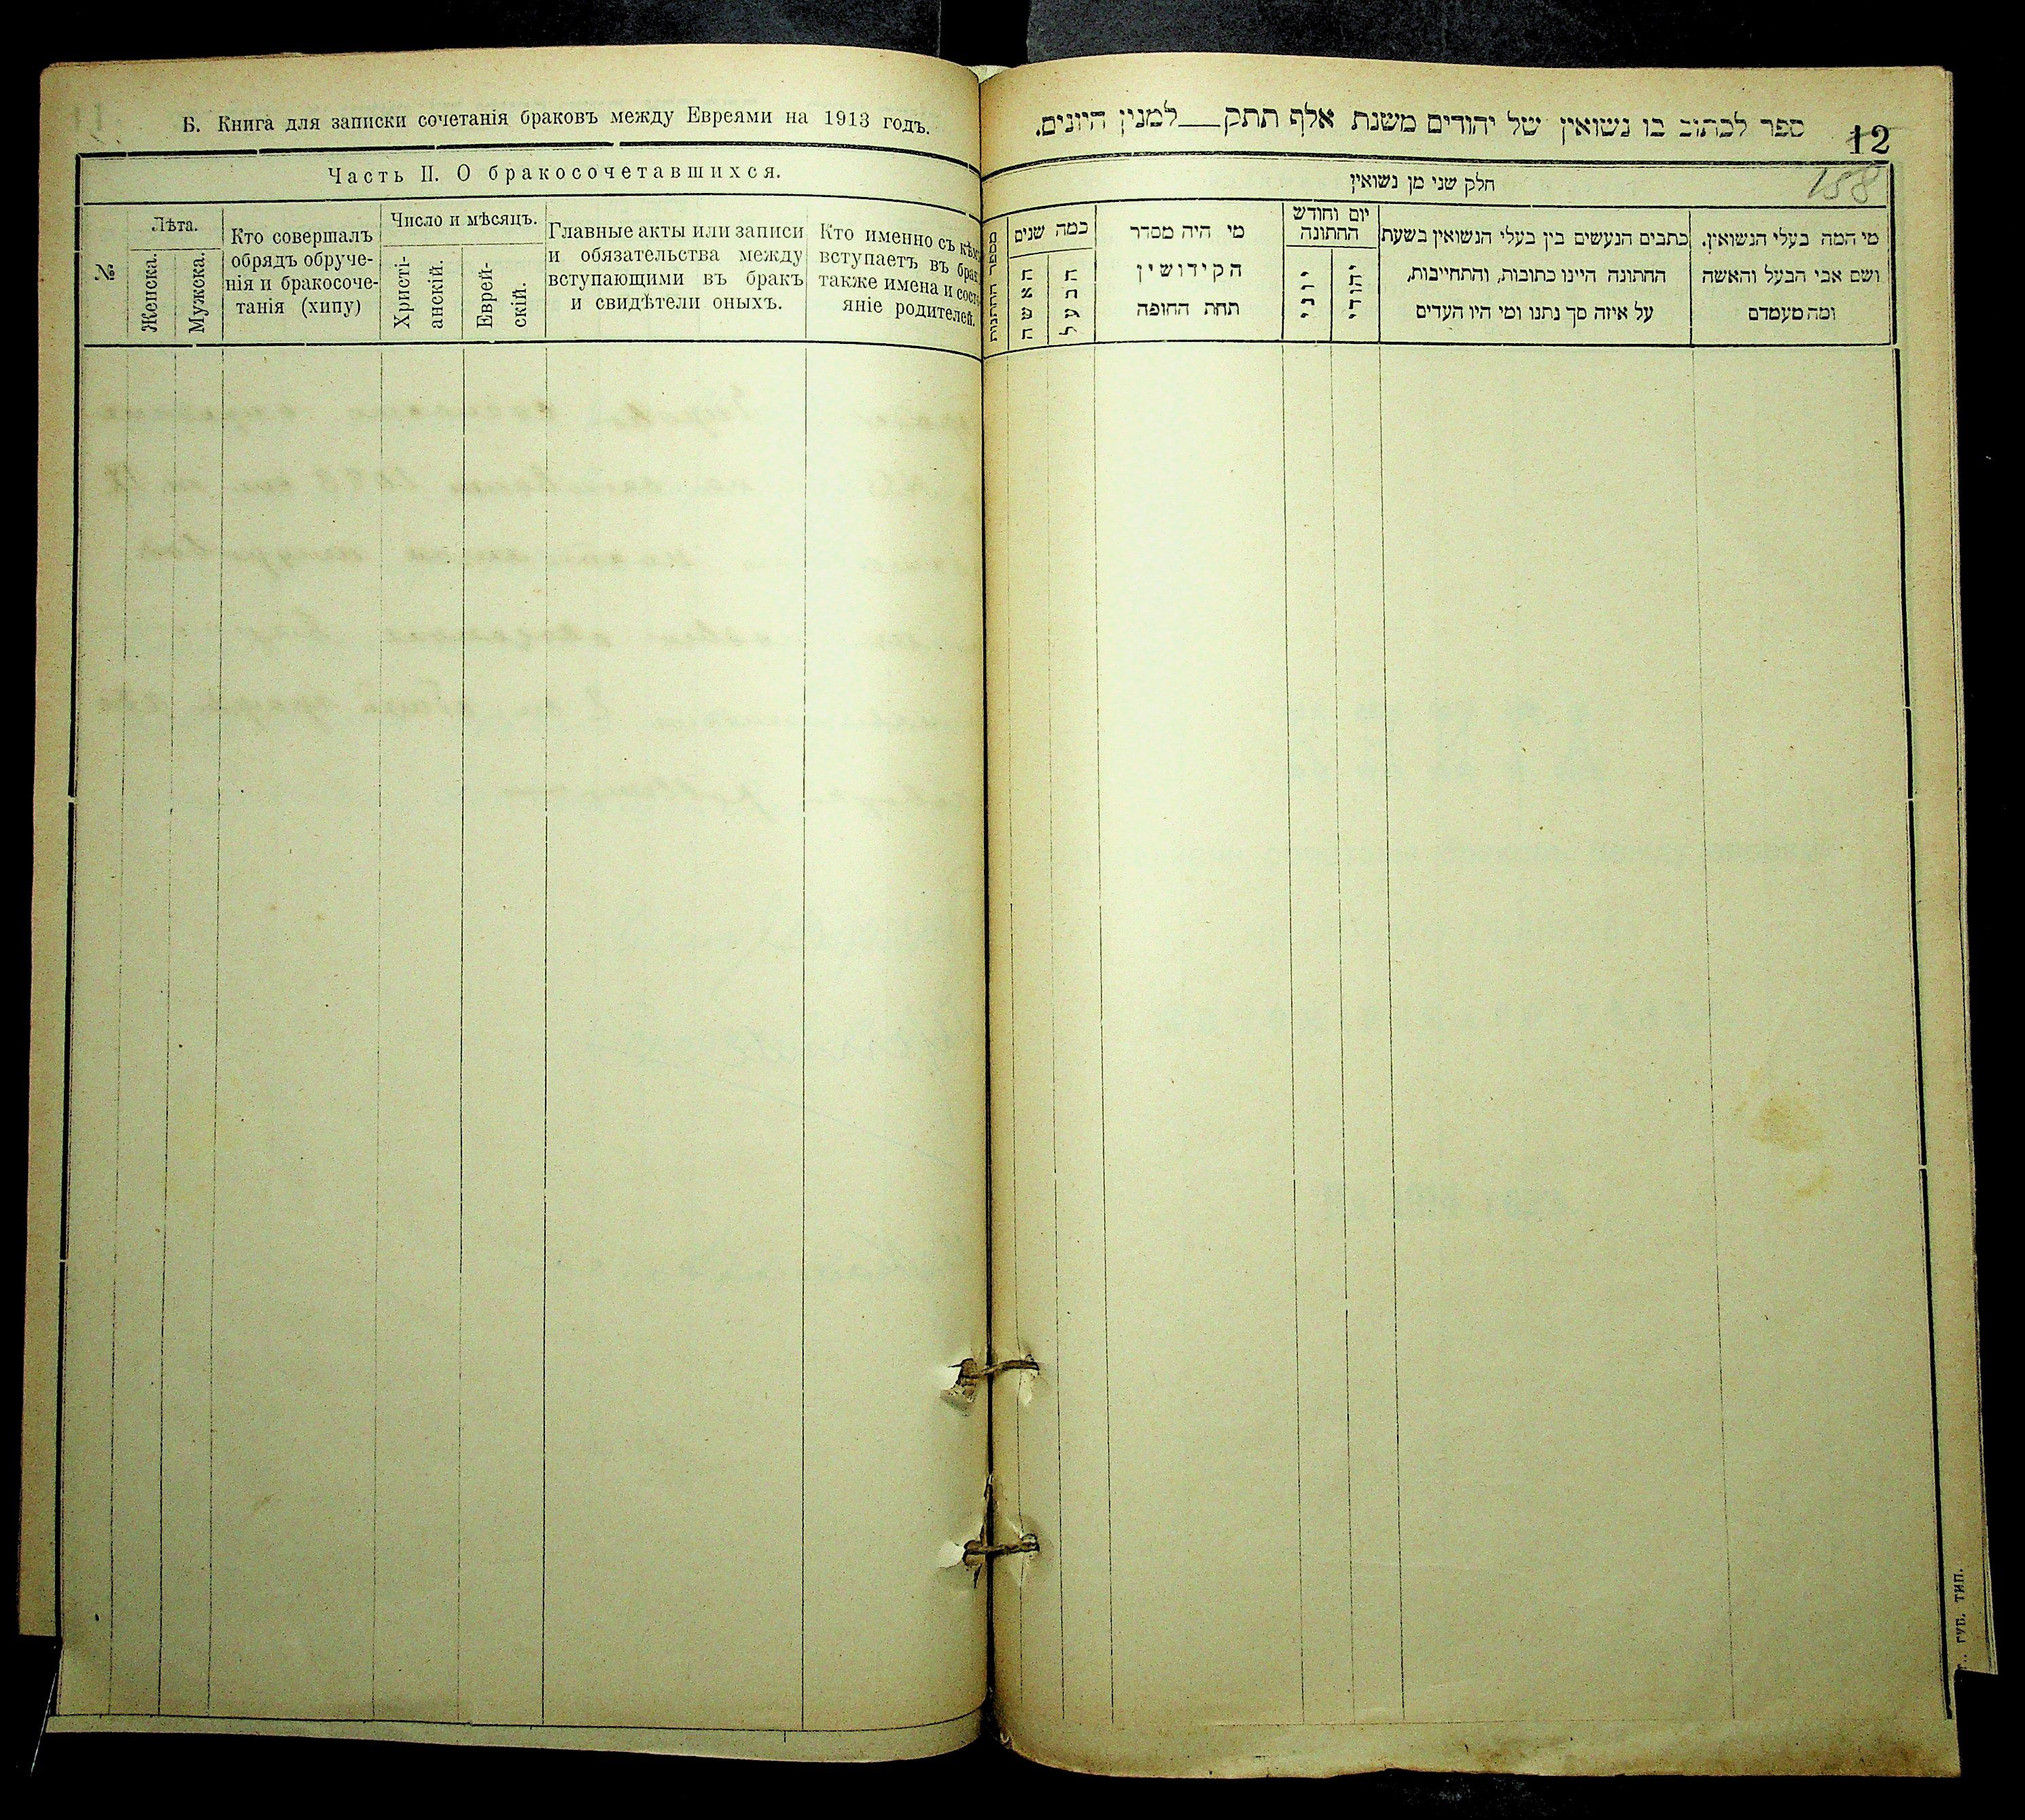 Б. Книга для записки сочетанія браковъ между Евреями на 1913 годъ.
Часть II. О бракосочетавшихся.
№
Лѣта.
Женска.
Мужска.
Кто совершалъ
обрядъ обруче-
нія и бракосоче-
танія (хипу)
Число и мѣсяцъ.
Христі-
анскій.
Еврей-
скій.
Главные акты или записи
и обязательства между
вступающими въ бракъ
и свидѣтели оныхъ.
Кто именно съ кѣмъ
вступаетъ въ брак
также имена и сост
яніе родителей.
12
158
ספר לכתוב בו נשואין של יהודים משנת אלף תתק__למנין היונים.
חלק שני מן נשואין
מי המה בעלי הנשואין.
ושם אבי הבעל והאשה
ומה מעמדם
כתבים הנעשים בין בעלי הנשואין בשעת
החתונה היינו כתובות, והתחייבות,
על איזה סך נתנו ומי היו העדים
יום וחודש
החתונה
יהודי
יוני
מי היה מסדר
הקידושין
תחת החופה
כמה שנים
הבעל
האשה
מספר החתנות
ГУБ. ТИП.